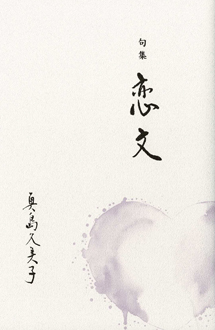 句集
恋文
真島久美子